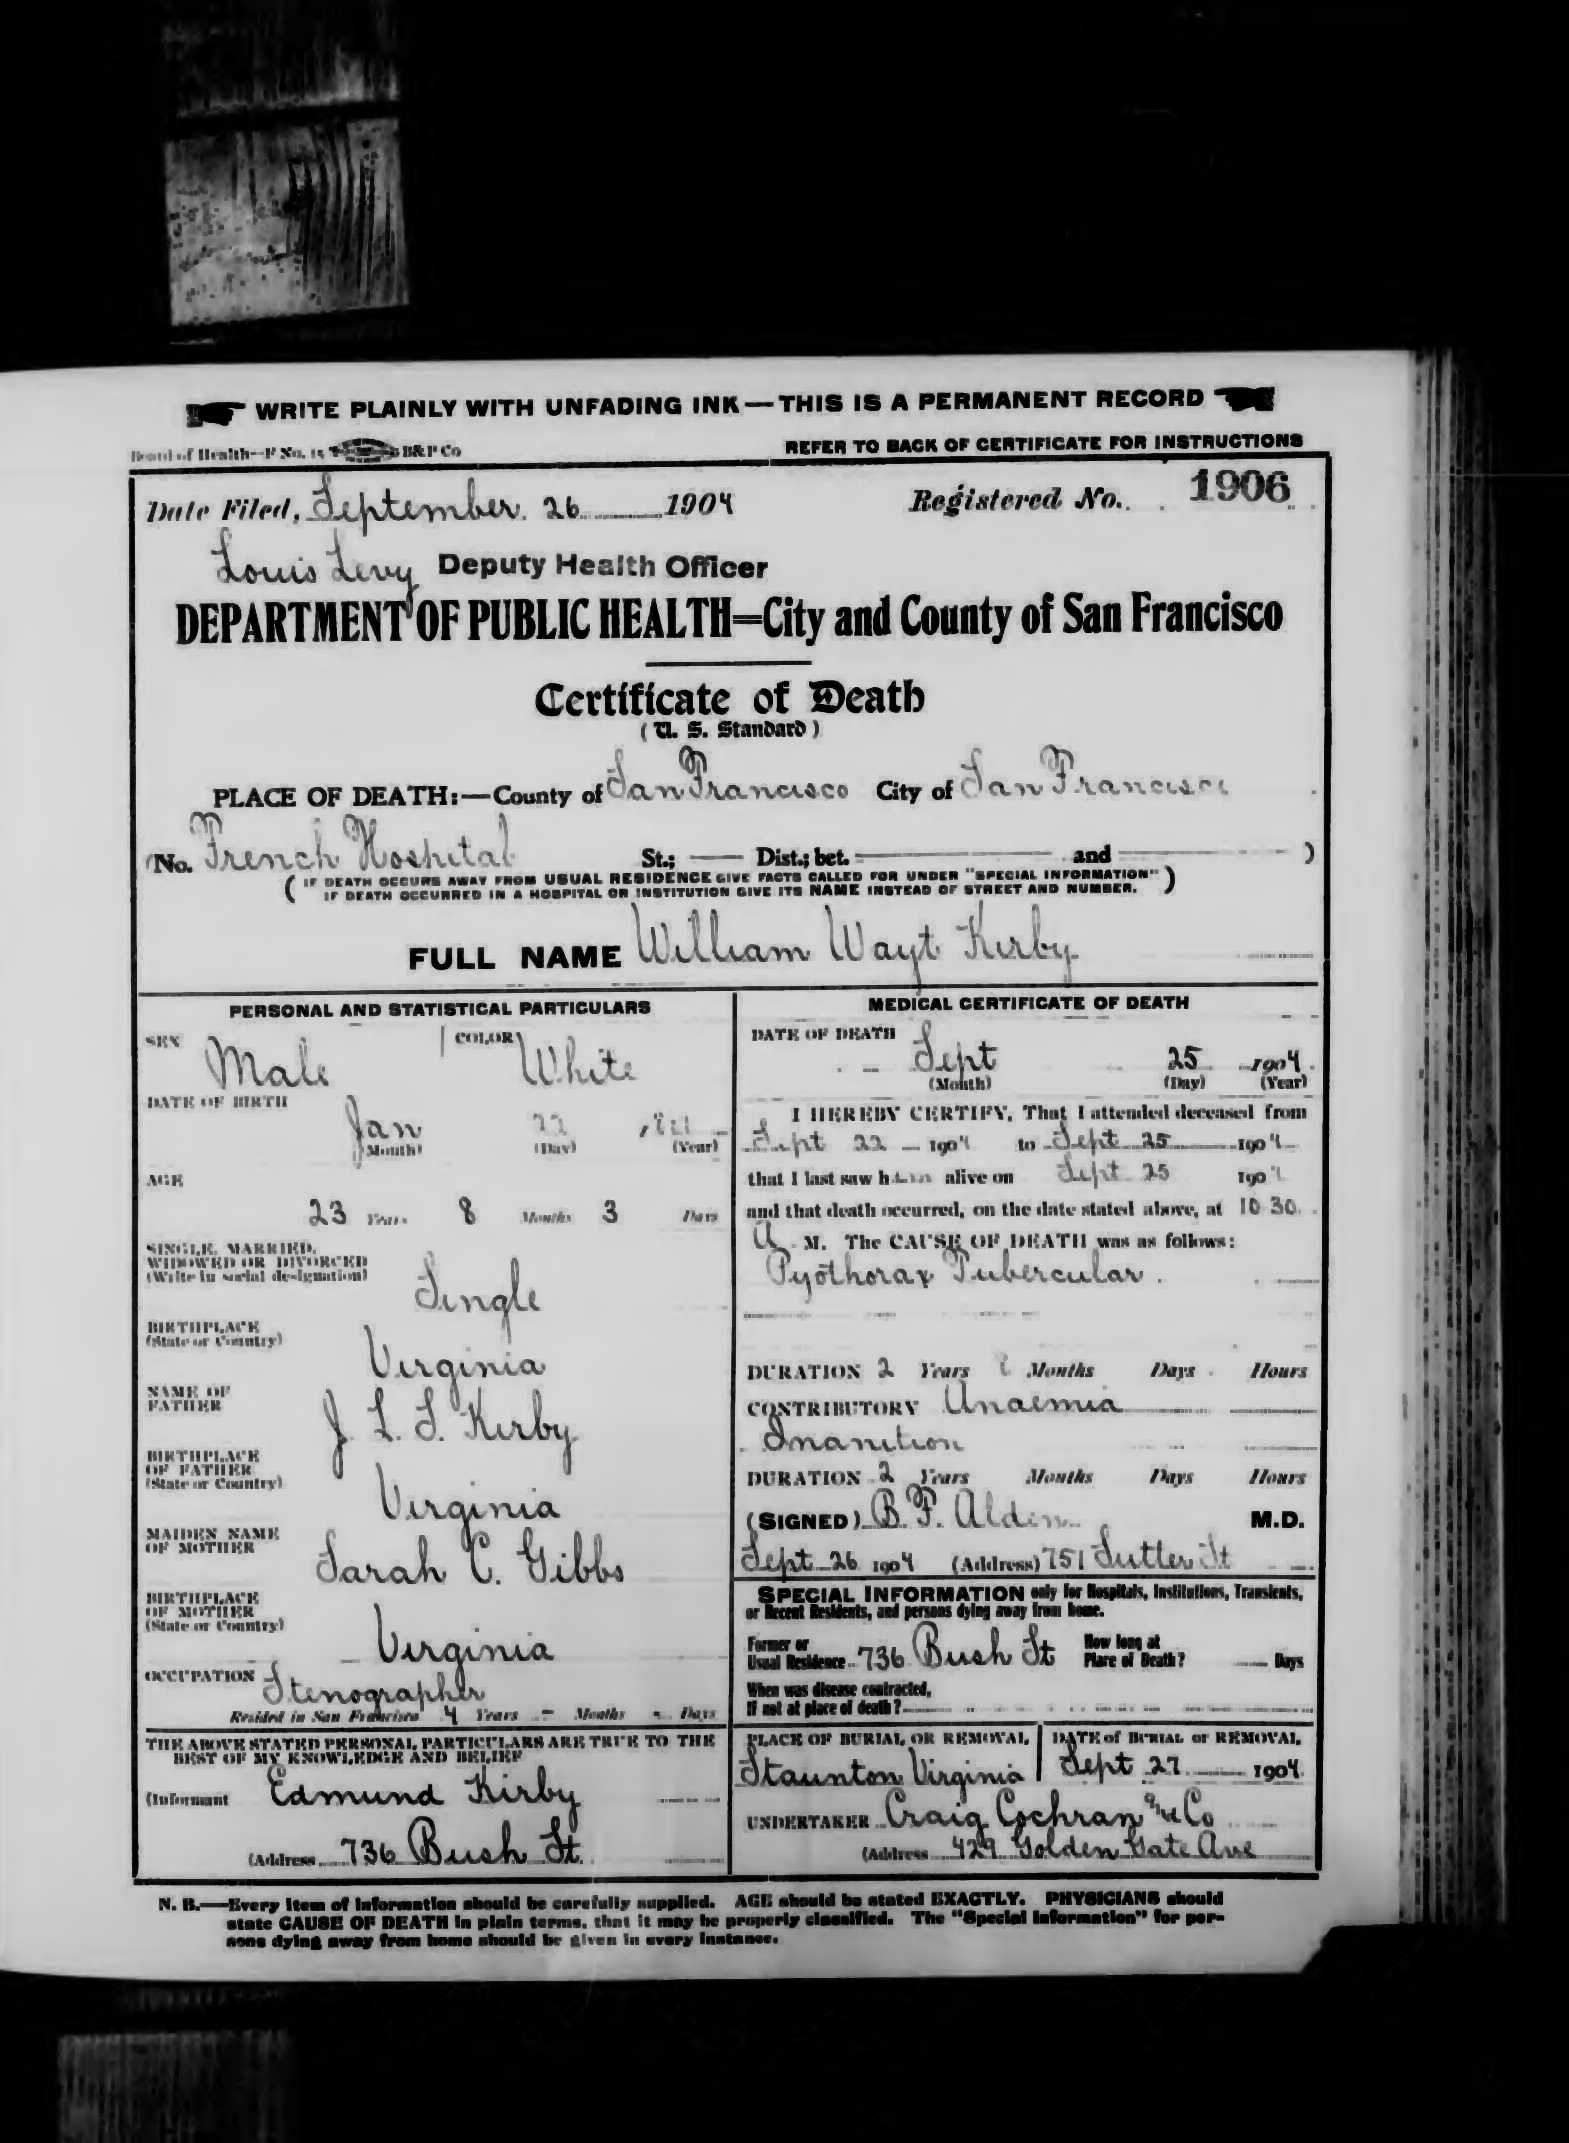 WRITE PLAINLY WITH UNFADING INK—THIS IS A PERMANENT RECORD
Board of Health—F No. 15 B&P Co REFER TO BACK OF CERTIFICATE FOR INSTRUCTIONS
Date Filed, September 26 1904 Registered No. 1906
Louis Levy Deputy Health Officer
DEPARTMENT OF PUBLIC HEALTH=City and County of San Francisco
Certificate of Death
(U. S. Standard)
PLACE OF DEATH:—County of San Francisco City of San Francisco
(No. French Hospital St.; — Dist.; bet. — and — )
( IF DEATH OCCURS AWAY FROM USUAL RESIDENCE GIVE FACTS CALLED FOR UNDER "SPECIAL INFORMATION" )
( IF DEATH OCCURRED IN A HOSPITAL OR INSTITUTION GIVE ITS NAME INSTEAD OF STREET AND NUMBER. )
FULL NAME William Wayt Kirby
PERSONAL AND STATISTICAL PARTICULARS
SEX Male COLOR White
DATE OF BIRTH
Jan 22
(Month) (Day) (Year)
AGE
23 Years 8 Months 3 Days
SINGLE, MARRIED,
WIDOWED OR DIVORCED
(Write in social designation)
Single
BIRTHPLACE
(State or Country)
Virginia
NAME OF
FATHER
J. L. S. Kirby
BIRTHPLACE
OF FATHER
(State or Country)
Virginia
MAIDEN NAME
OF MOTHER
Sarah C. Gibbs
BIRTHPLACE
OF MOTHER
(State or Country)
Virginia
OCCUPATION Stenographer
Resided in San Francisco 4 Years - Months - Days
THE ABOVE STATED PERSONAL PARTICULARS ARE TRUE TO THE
BEST OF MY KNOWLEDGE AND BELIEF
(Informant Edmund Kirby
(Address 736 Bush St.
MEDICAL CERTIFICATE OF DEATH
DATE OF DEATH
Sept 25 1904
(Month) (Day) (Year)
I HEREBY CERTIFY, That I attended deceased from
Sept 22 1904 to Sept 25 1904
that I last saw him alive on Sept 25 1904
and that death occurred, on the date stated above, at 10 30
A M. The CAUSE OF DEATH was as follows:
Pyothorax Tubercular.
DURATION 2 Years Months Days Hours
CONTRIBUTORY Anaemia
Inanition
DURATION 2 Years Months Days Hours
(SIGNED) B. F. Alden M.D.
Sept 26 1904 (Address) 751 Sutter St
SPECIAL INFORMATION only for Hospitals, Institutions, Transients,
or Recent Residents, and persons dying away from home.
Former or
Usual Residence 736 Bush St
How long at
Place of Death? — Days
When was disease contracted,
If not at place of death?
PLACE OF BURIAL OR REMOVAL
Staunton Virginia
DATE of BURIAL or REMOVAL
Sept 27 1904
UNDERTAKER Craig Cochran and Co
(Address 429 Golden Gate Ave
N. B.—Every item of information should be carefully supplied. AGE should be stated EXACTLY. PHYSICIANS should
state CAUSE OF DEATH in plain terms, that it may be properly classified. The "Special Information" for per-
sons dying away from home should be given in every instance.